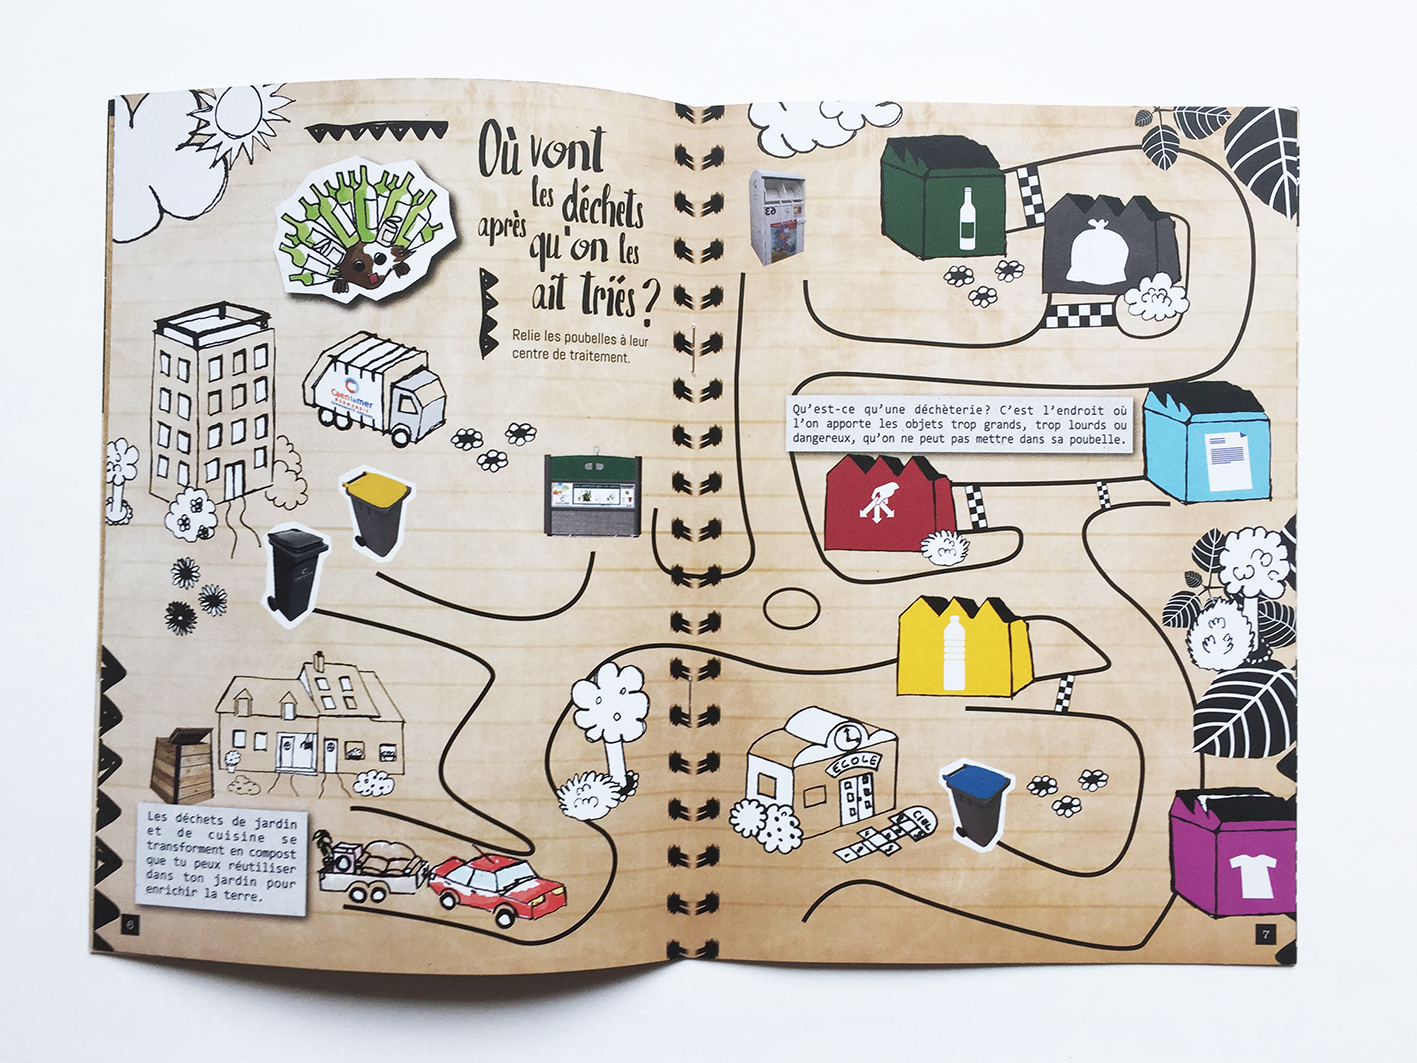 Où vont
les déchets
après qu'on les
ait triés ?
Relie les poubelles à leur
centre de traitement.
Caenlamer
NORMANDIE
Les déchets de jardin
et de cuisine se
transforment en compost
que tu peux réutiliser
dans ton jardin pour
enrichir la terre.
6
Qu'est-ce qu'une déchèterie? C'est l'endroit où
l'on apporte les objets trop grands, trop lourds ou
dangereux, qu'on ne peut pas mettre dans sa poubelle.
ÉCOLE
CIEL
7